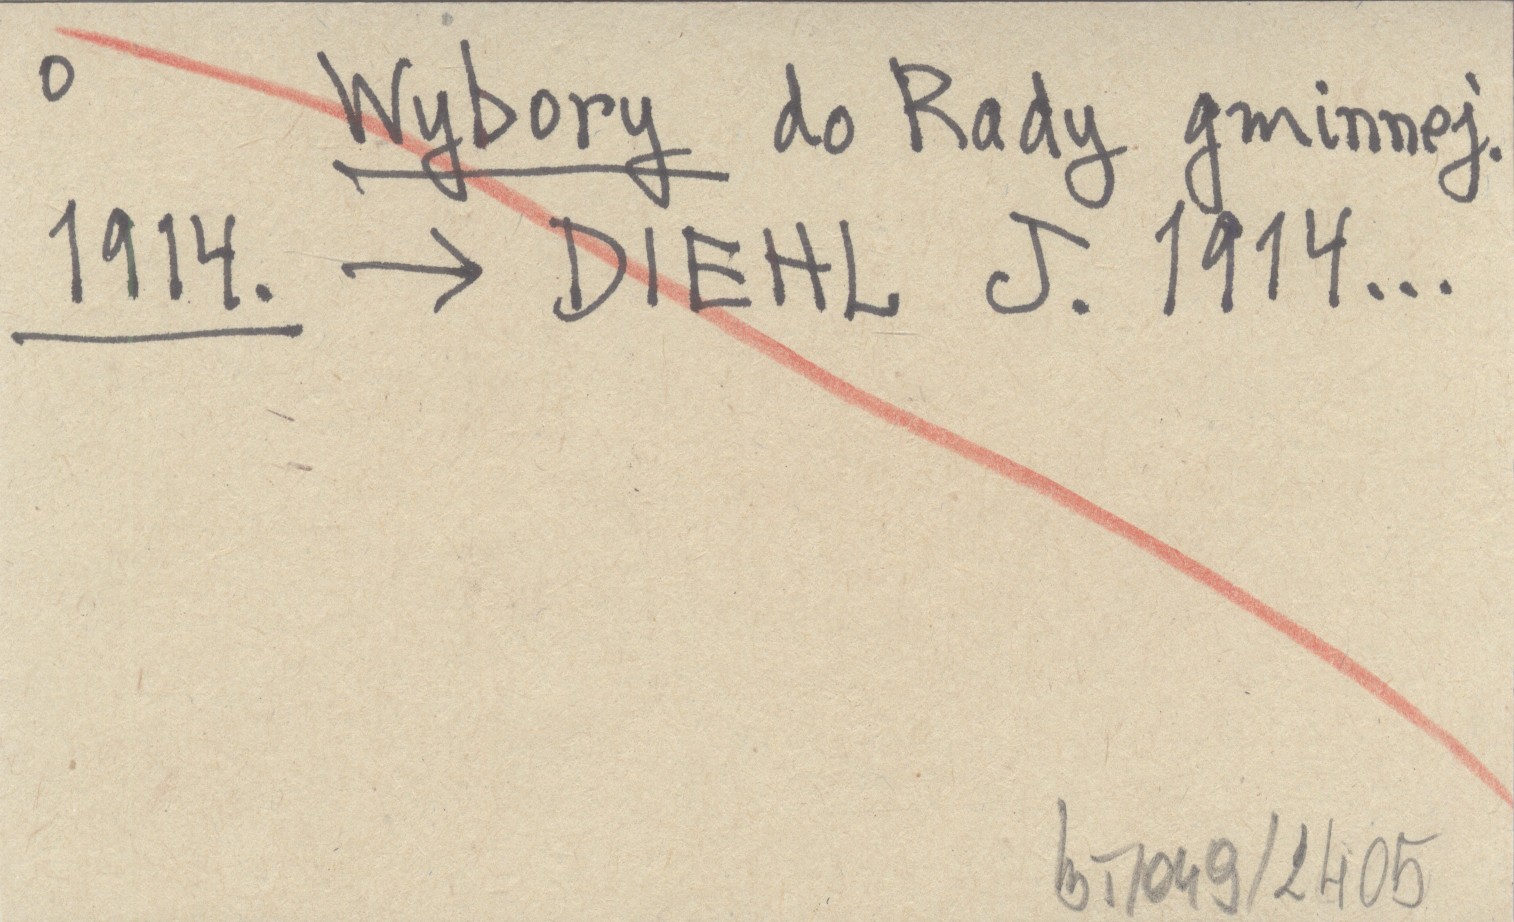 o Wybory do Rady gminnej.
1914. → DIEHL J. 1914...
bT/049/2405